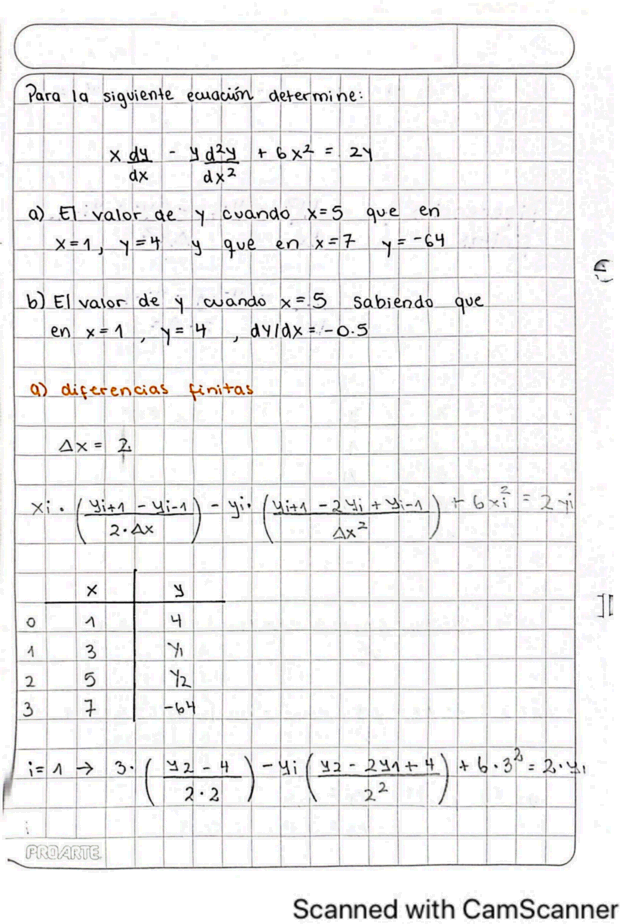 Para la siguiente ecuación determine:
x dy/dx - y d²y/dx² + 6x² = 2y
a) El valor de y cuando x=5 que en
x=1, y=4 y que en x=7 y=-64
b) El valor de y cuando x=5 sabiendo que
en x=1, y=4, dy/dx=-0.5
a) diferencias finitas
Δx = 2
xi · ((yi+1 - yi-1)/(2·Δx)) - yi · ((yi+1 - 2yi + yi-1)/Δx²) + 6xi² = 2yi
x y
0 1 4
1 3 y1
2 5 y2
3 7 -64
i=1 → 3 · ((y2 - 4)/(2·2)) - yi ((y2 - 2y1 + 4)/2²) + 6·3² = 2·y1
PROARTE
Scanned with CamScanner